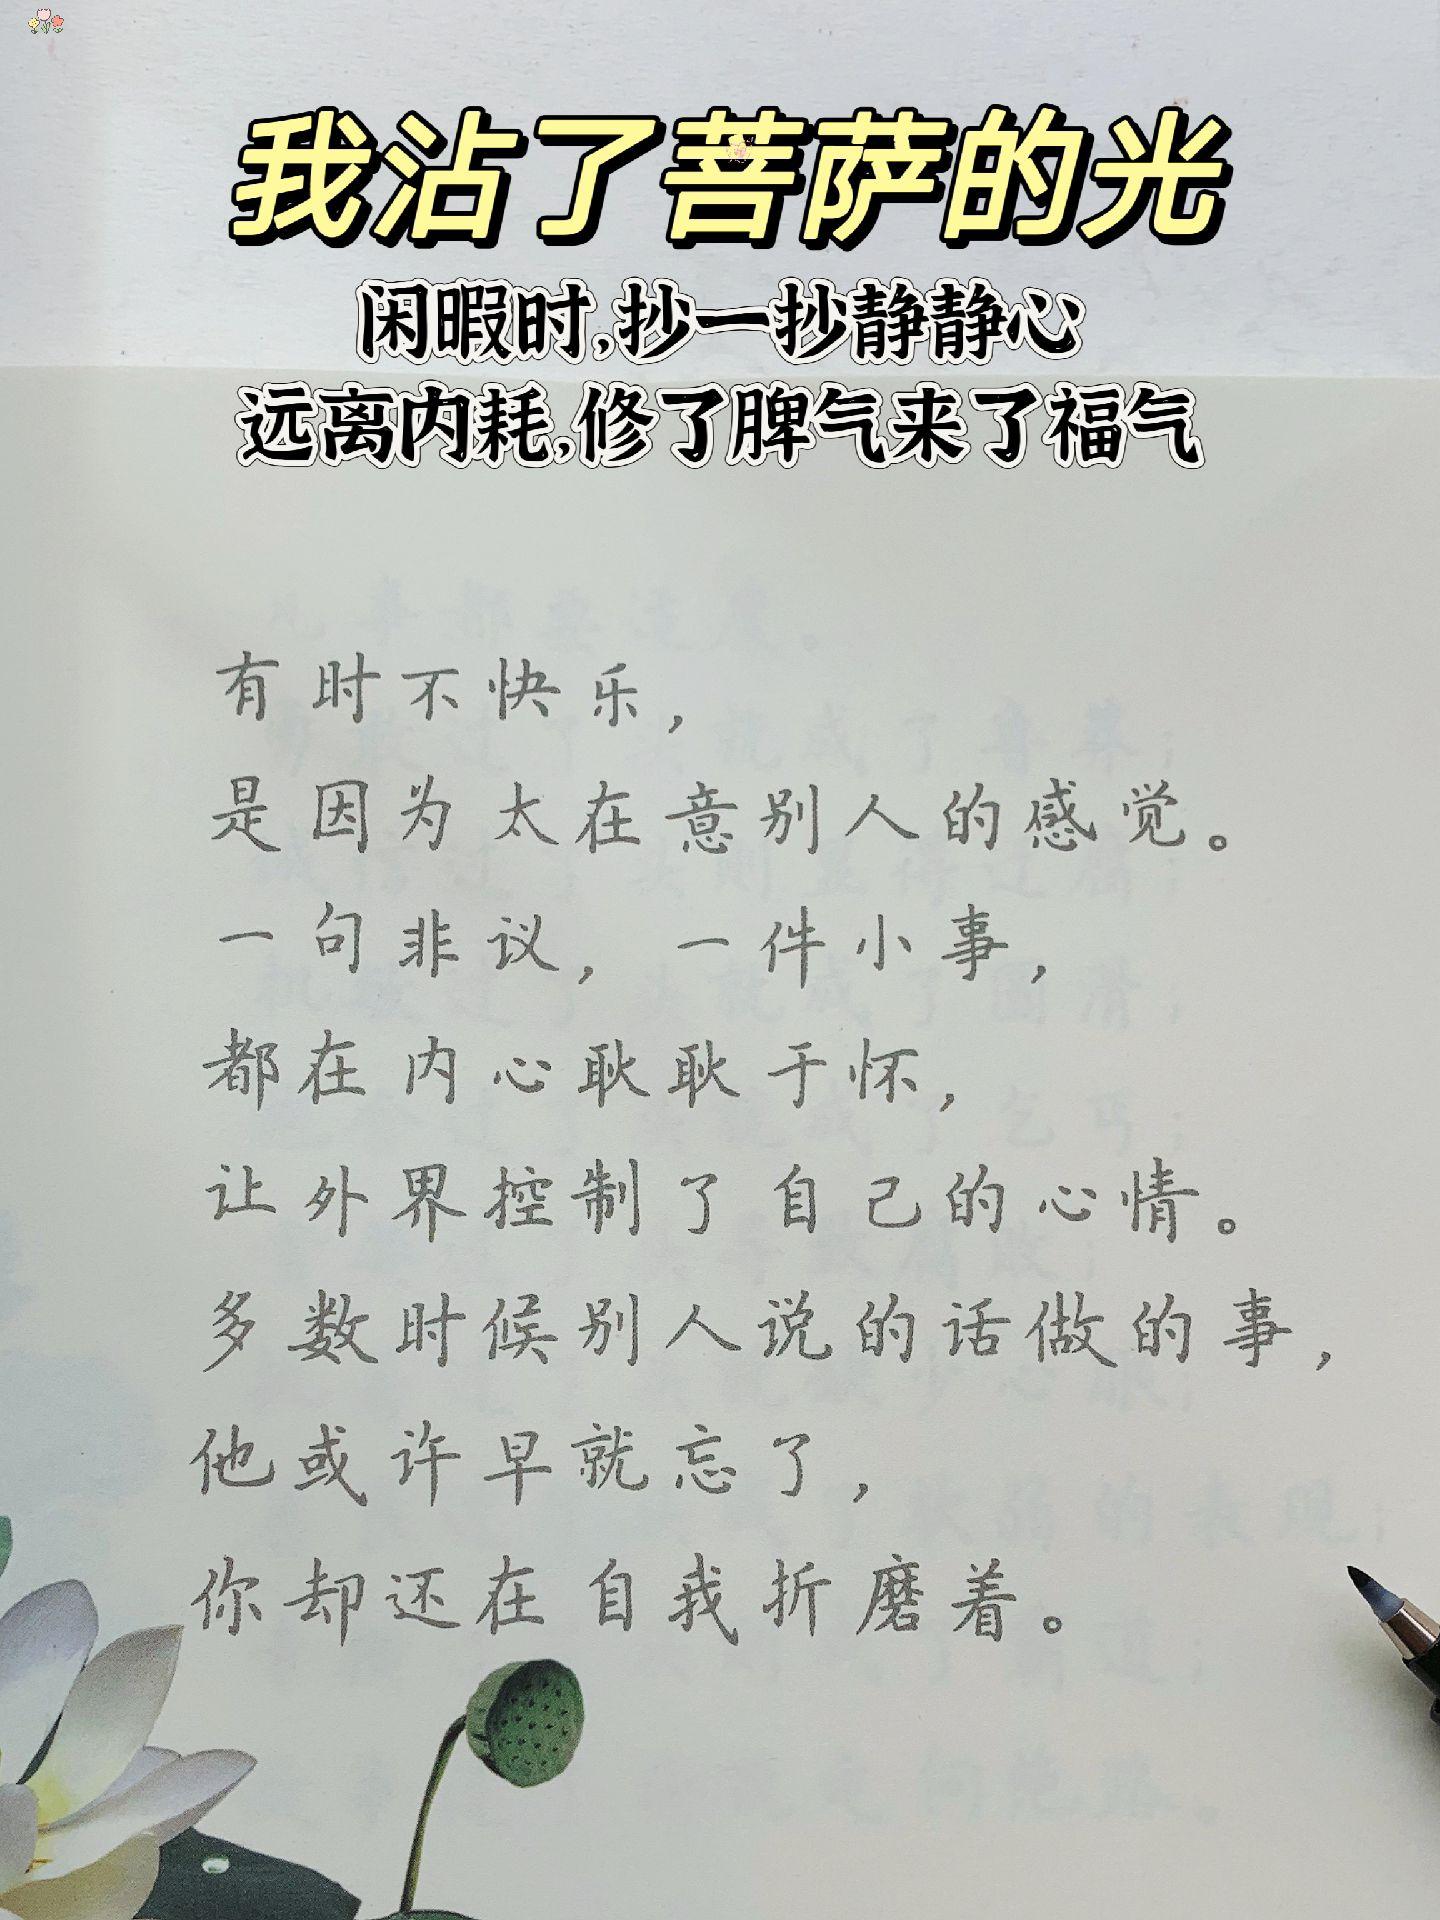 我沾了菩萨的光
闲暇时,抄一抄静静心
远离内耗,修了脾气来了福气
有时不快乐，
是因为太在意别人的感觉。
一句非议，一件小事，
都在内心耿耿于怀，
让外界控制了自己的心情。
多数时候别人说的话做的事，
他或许早就忘了，
你却还在自我折磨着。